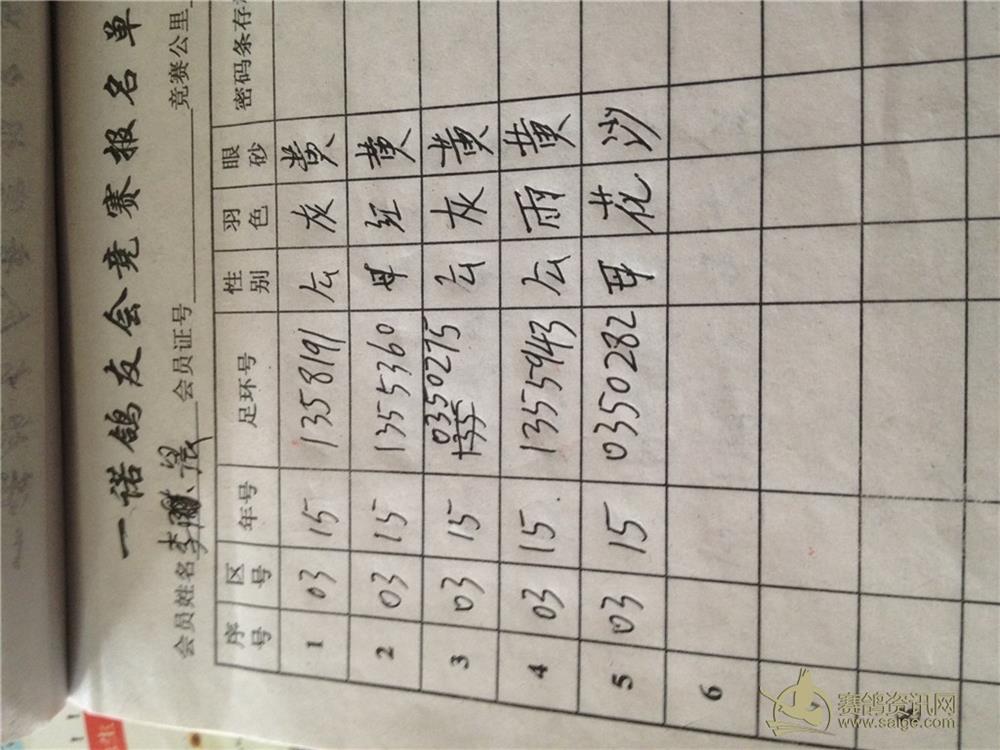 一诺鸽友会竞赛报名单
会员姓名 李 会员证号 竞赛公里
序号 区号 年号 足环号 性别 羽色 眼砂 密码条存
1 03 15 1358191 厶 灰 黄
2 03 15 1355360 母 红 黄
3 03 15 0350275 厶 灰 黄
4 03 15 1355943 厶 雨 黄
5 03 15 0350282 母 花 沙
6
赛鸽资讯网
www.saige.com